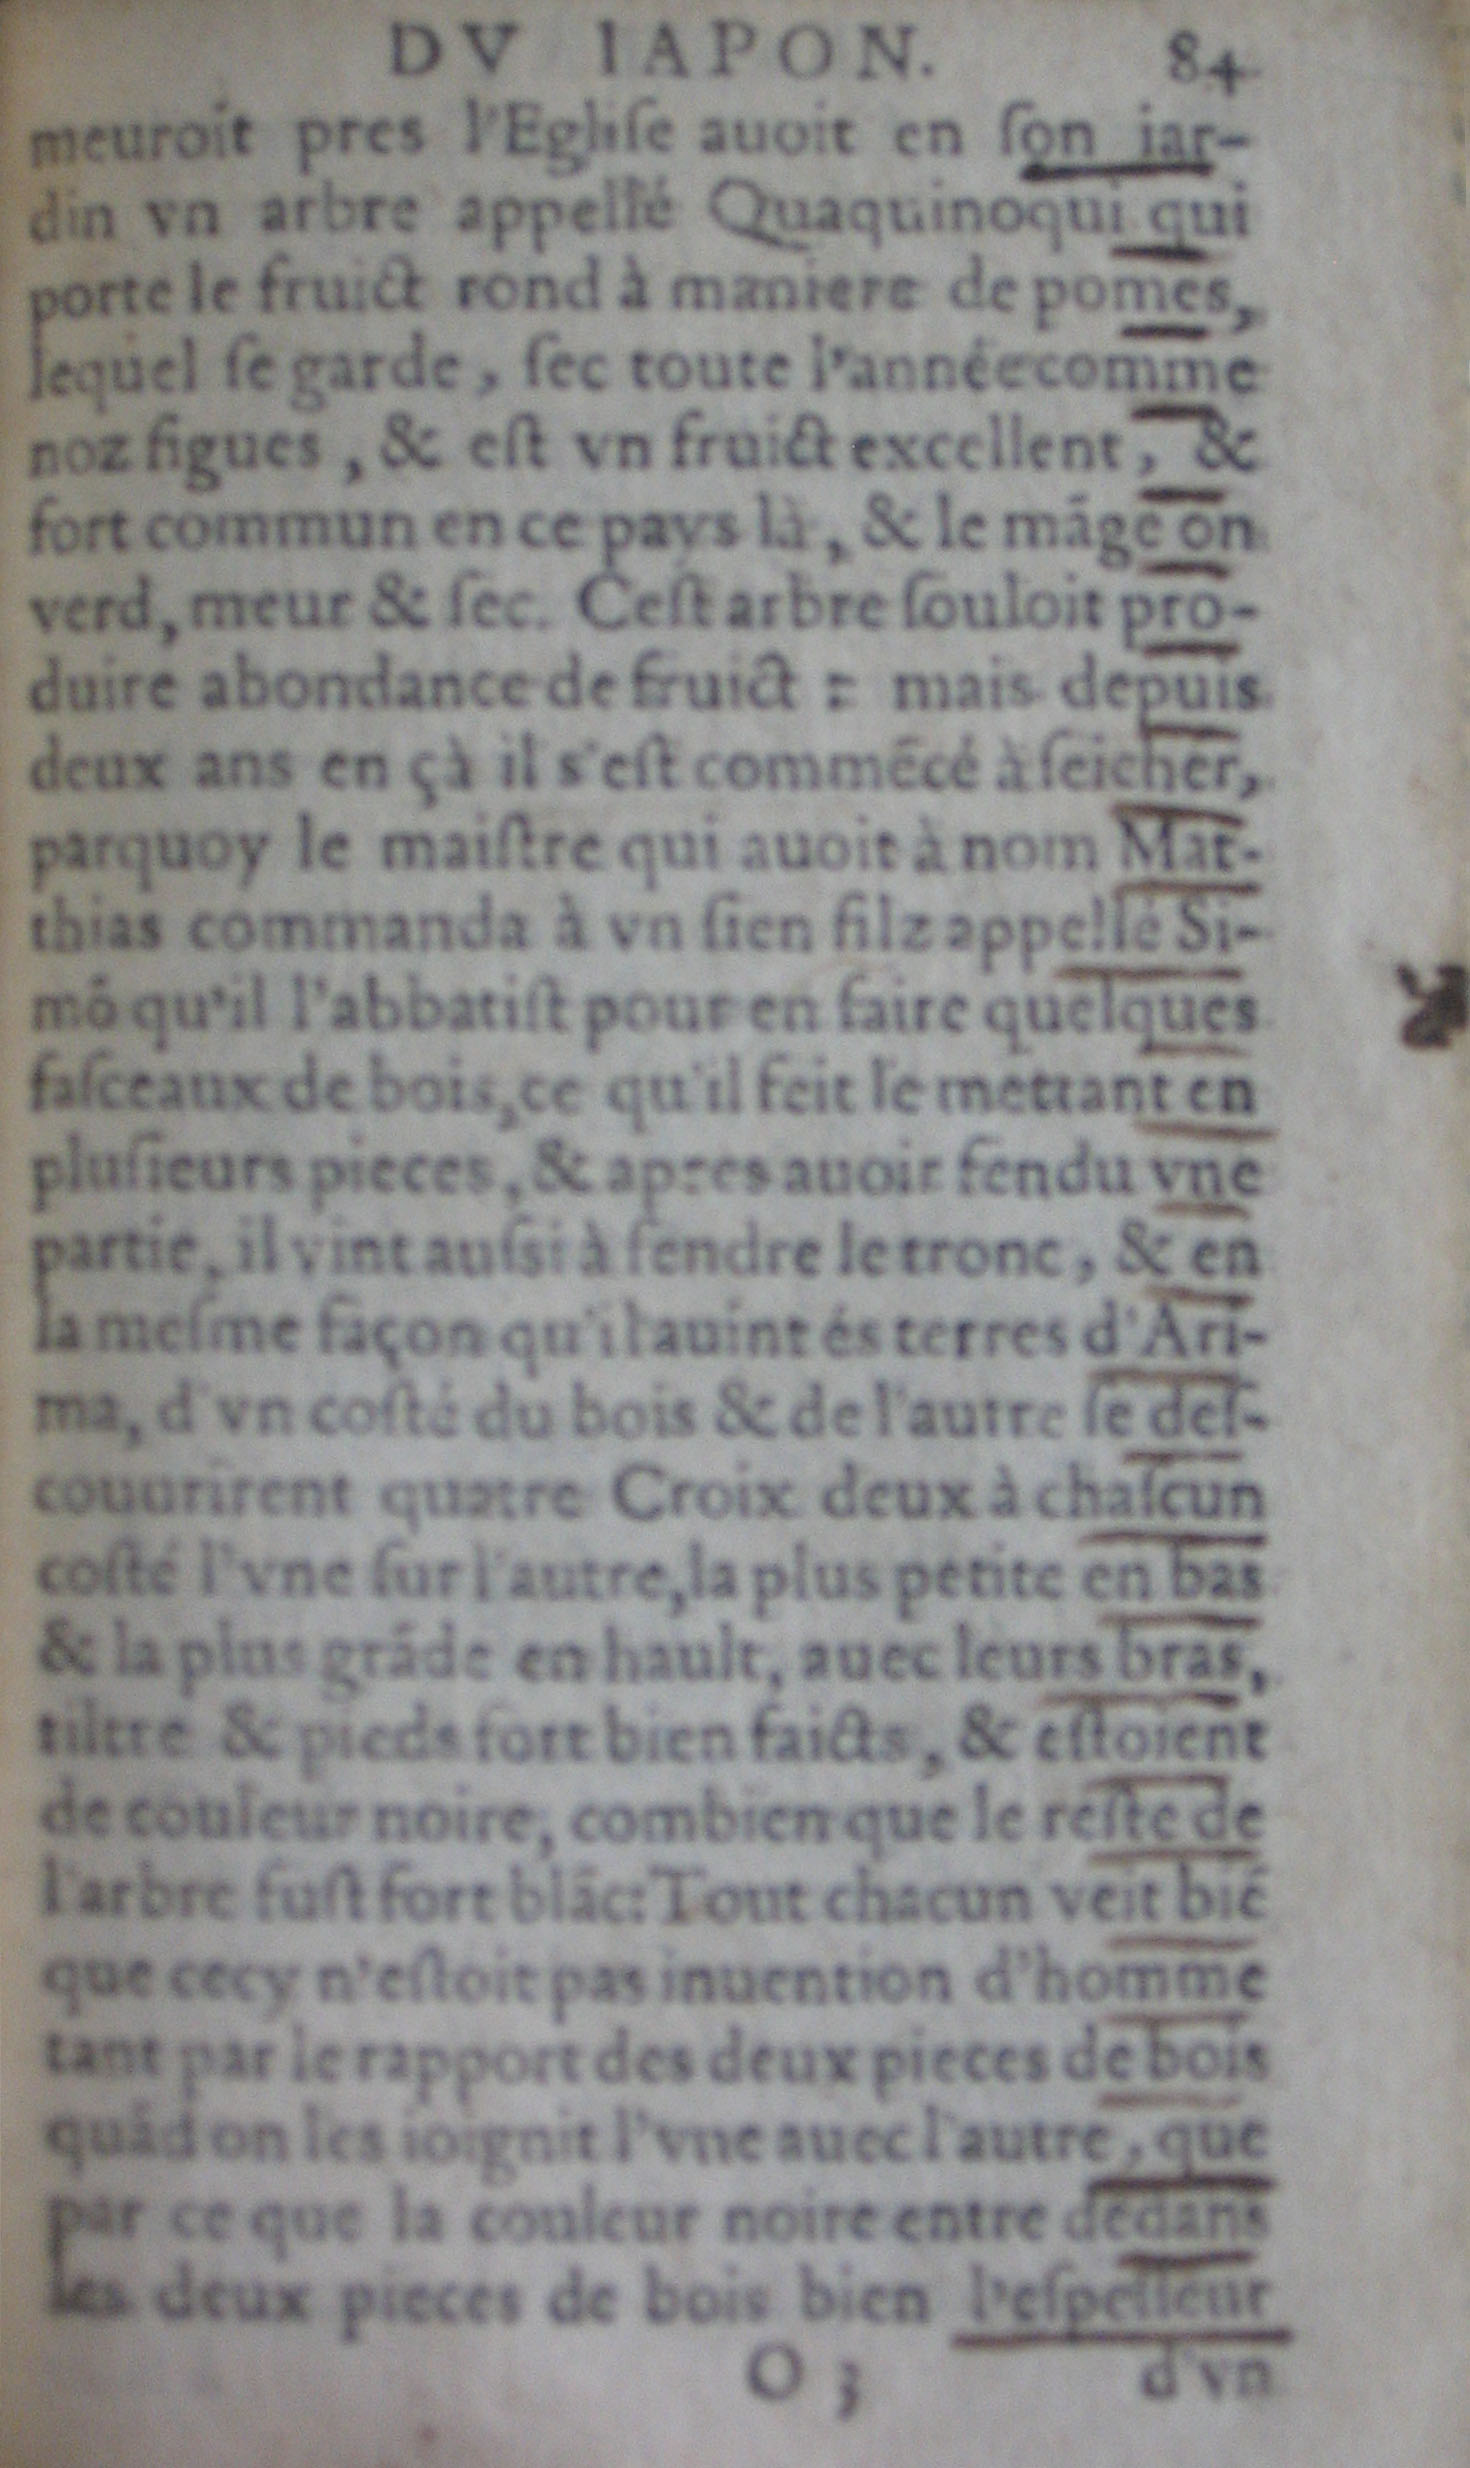 DV IAPON. 84
meuroit pres l'Egliſe auoit en ſon iar-
din vn arbre appellé Quaquinoqui qui
porte le fruict rond à maniere de pomes,
lequel ſe garde, ſec toute l'année comme
noz figues, & eſt vn fruict excellent, &
fort commun en ce pays là, & le mãge on
verd, meur & ſec. Ceſt arbre ſouloit pro-
duire abondance de fruict : mais depuis
deux ans en çà il s'eſt commẽcé à ſeicher,
parquoy le maiſtre qui auoit à nom Mat-
thias commanda à vn ſien filz appellé Si-
mõ qu'il l'abbatiſt pour en faire quelques
faſceaux de bois, ce qu'il feit le mettant en
pluſieurs pieces, & apres auoir fendu vne
partie, il vint auſsi à fendre le tronc, & en
la meſme façon qu'il auint és terres d'Ari-
ma, d'vn coſté du bois & de l'autre ſe deſ-
couurirent quatre Croix deux à chaſcun
coſté l'vne ſur l'autre, la plus petite en bas
& la plus grãde en hault, auec leurs bras,
tiltre & pieds fort bien faicts, & eſtoient
de couleur noire, combien que le reſte de
l'arbre fuſt fort blãc: Tout chacun veit biẽ
que cecy n'eſtoit pas inuention d'homme
tant par le rapport des deux pieces de bois
quãd on les ioignit l'vne auec l'autre, que
par ce que la couleur noire entre dedans
les deux pieces de bois bien l'eſpeſſeur
O 3 d'vn